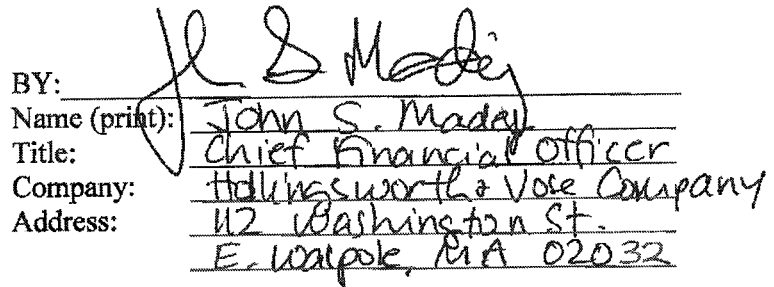 BY: J S Madej
Name (print): John S. Madej
Title: Chief Financial Officer
Company: Hollingsworth & Vose Company
Address: 112 Washington St.
E. Walpole, MA 02032